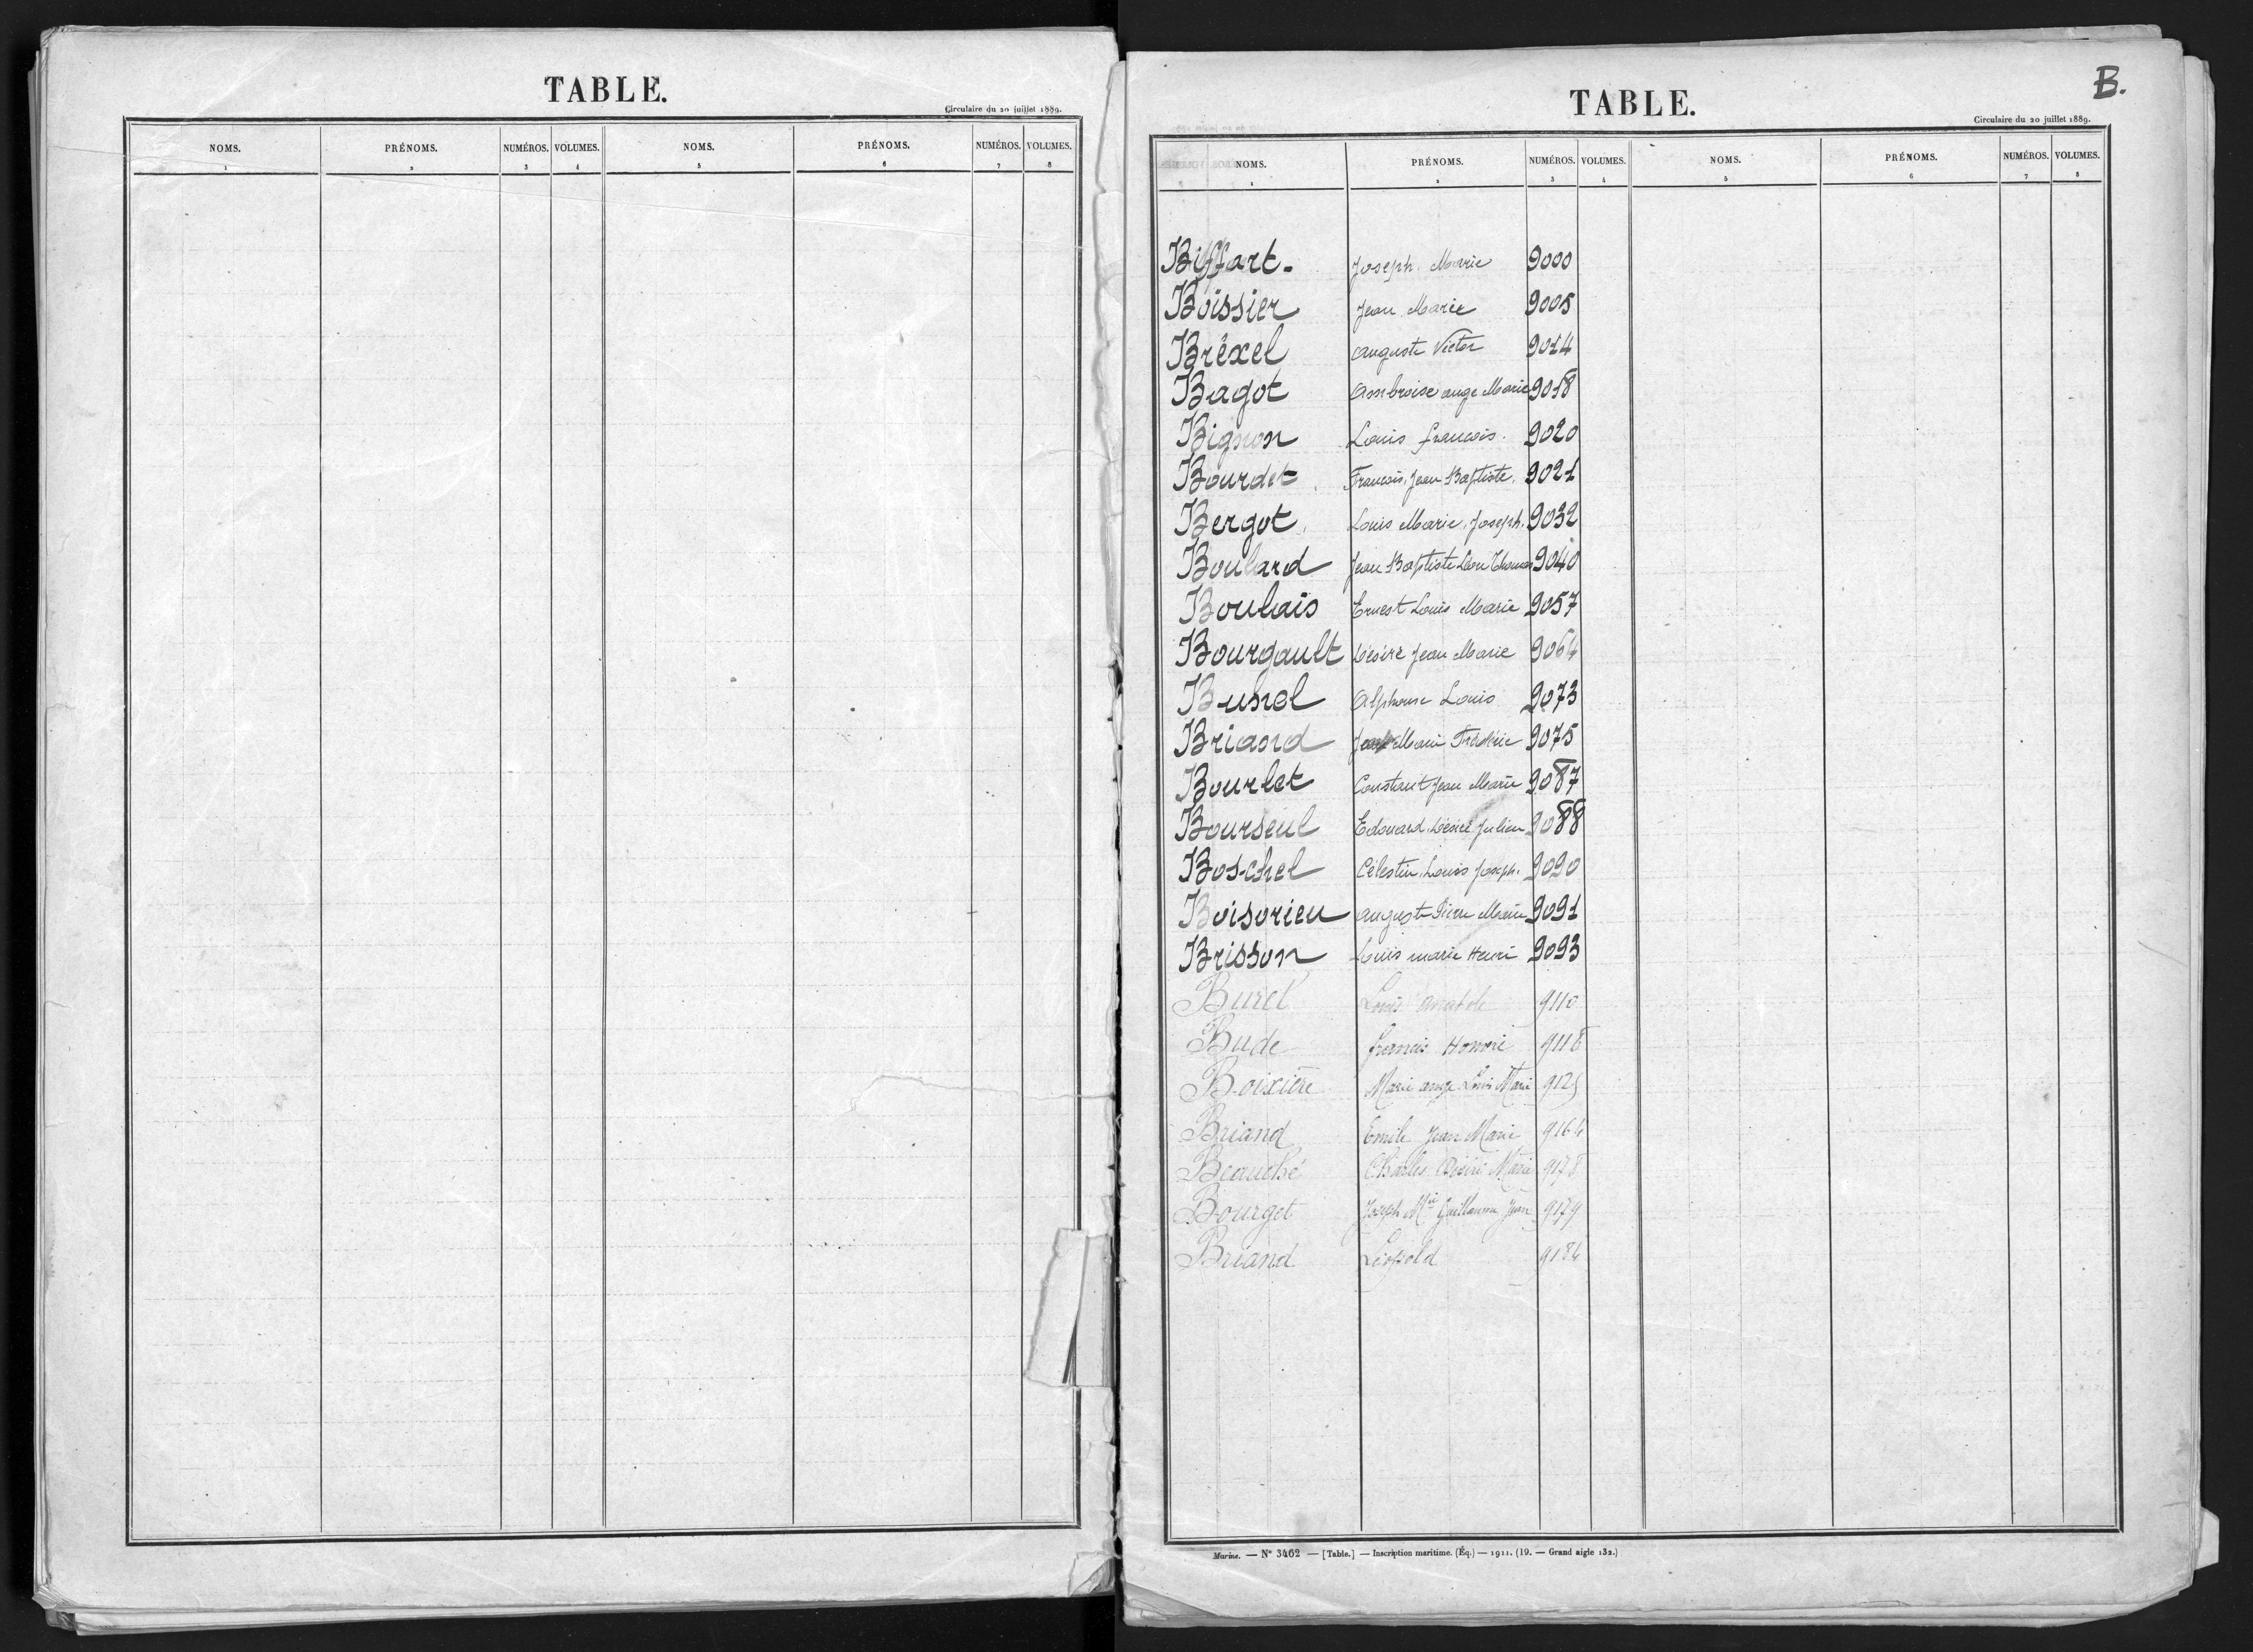 TABLE.
Circulaire du 20 juillet 1889.
NOMS. PRÉNOMS. NUMÉROS. VOLUMES. NOMS. PRÉNOMS. NUMÉROS. VOLUMES.
1 2 3 4 5 6 7 8
B.
TABLE.
Circulaire du 20 juillet 1889.
NOMS. PRÉNOMS. NUMÉROS. VOLUMES. NOMS. PRÉNOMS. NUMÉROS. VOLUMES.
1 2 3 4 5 6 7 8
Biffart. Joseph. Marie 9000
Boissier Jean Marie 9005
Bréxel Auguste Victor 9014
Bagot Ambroise ange Marie 9018
Bignon Louis francois. 9020
Bourdet Francois, Jean Baptiste. 9021
Bergot Louis Marie, Joseph. 9032
Boulard Jean Baptiste Léon Thomas 9040
Boulais Ernest Louis Marie 9057
Bourgault Désiré Jean Marie 9064
Bunel Alphonse Louis 9073
Briand Marie Frédéric 9075
Bourlet Constant Jean Marie 9087
Bourseul Edouard. Désiré Julien 9088
Boschel Célestin. Louis Joseph. 9090
Boisorieu auguste Pierre Marie 9091
Brisson Louis marie Henri 9093
Burel Louis anatole 9110
Bude francis Honoré 9118
Boixière Marie ange Louis Marie 9125
Briand Emile Jean Marie 9164
Beauché Charles Désiré Marie 9178
Bourget Joseph Mie Guillaume Jean 9179
Briand Léopold 9184
Marine. — N° 3462 — [Table.] — Inscription maritime. (Éq.) — 1911. (19. — Grand aigle 132.)